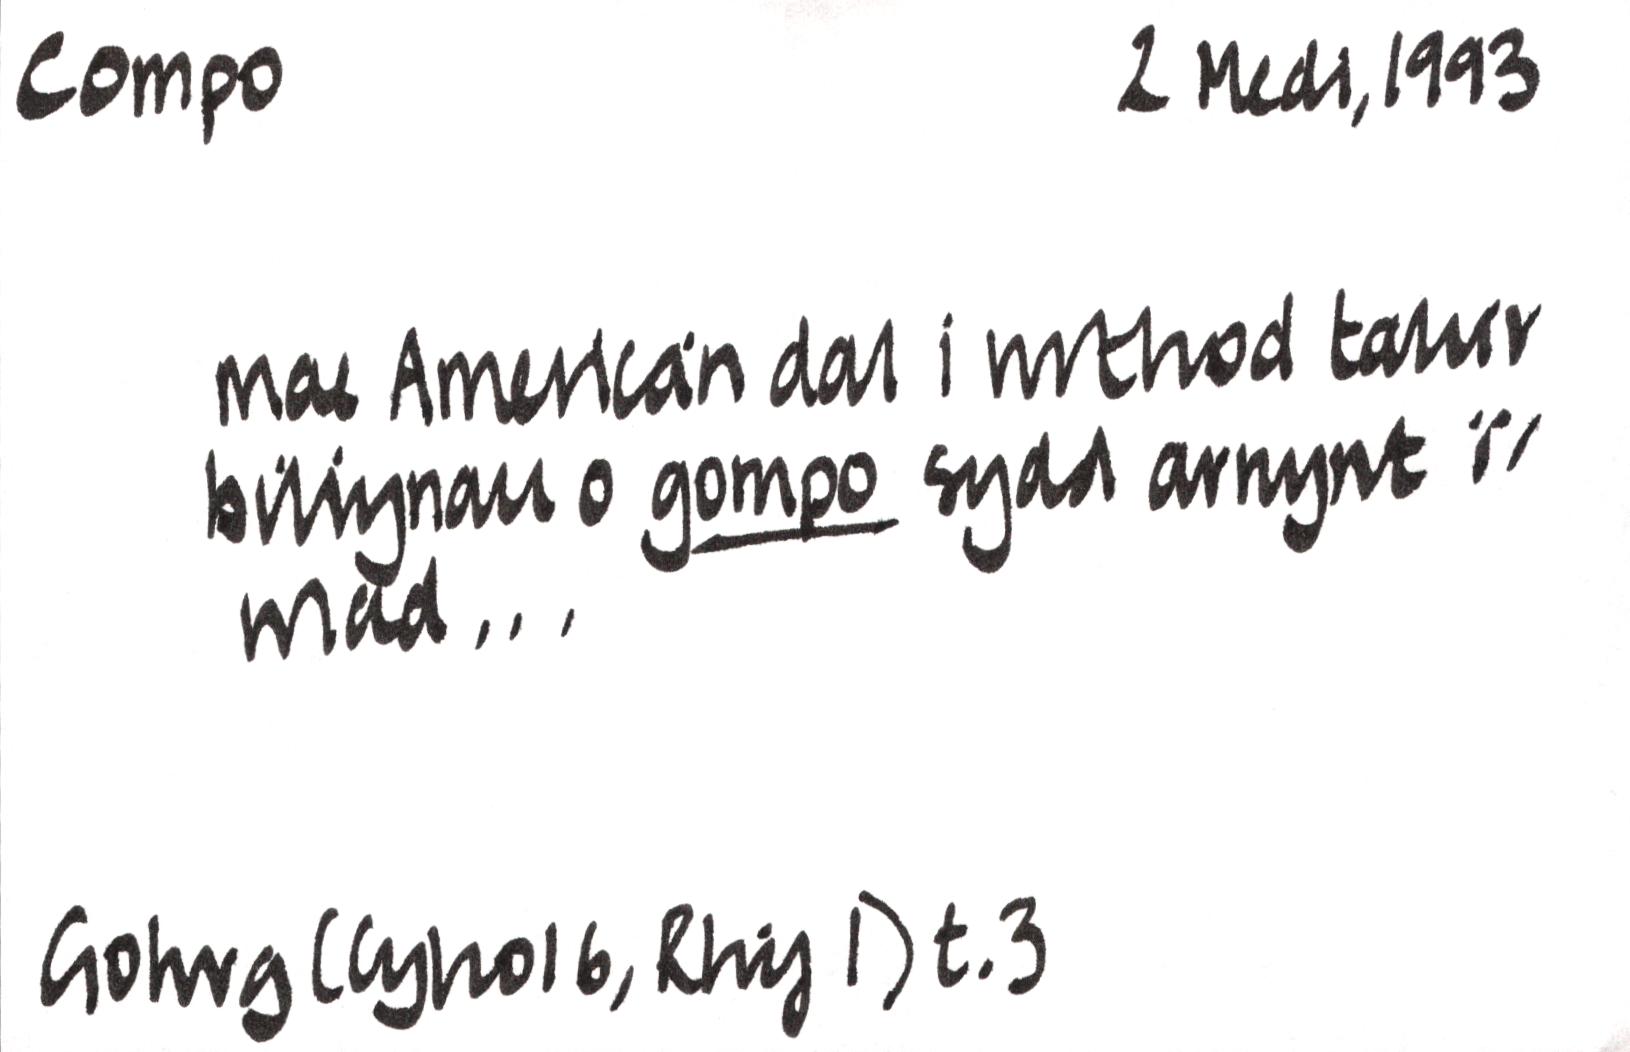 Compo 2 Medi, 1993
mae America'n dal i wrthod talu'r
biliynau o gompo sydd arnynt i'r
wlad...
Golwg (Cyfrol 6, Rhif 1) t.3